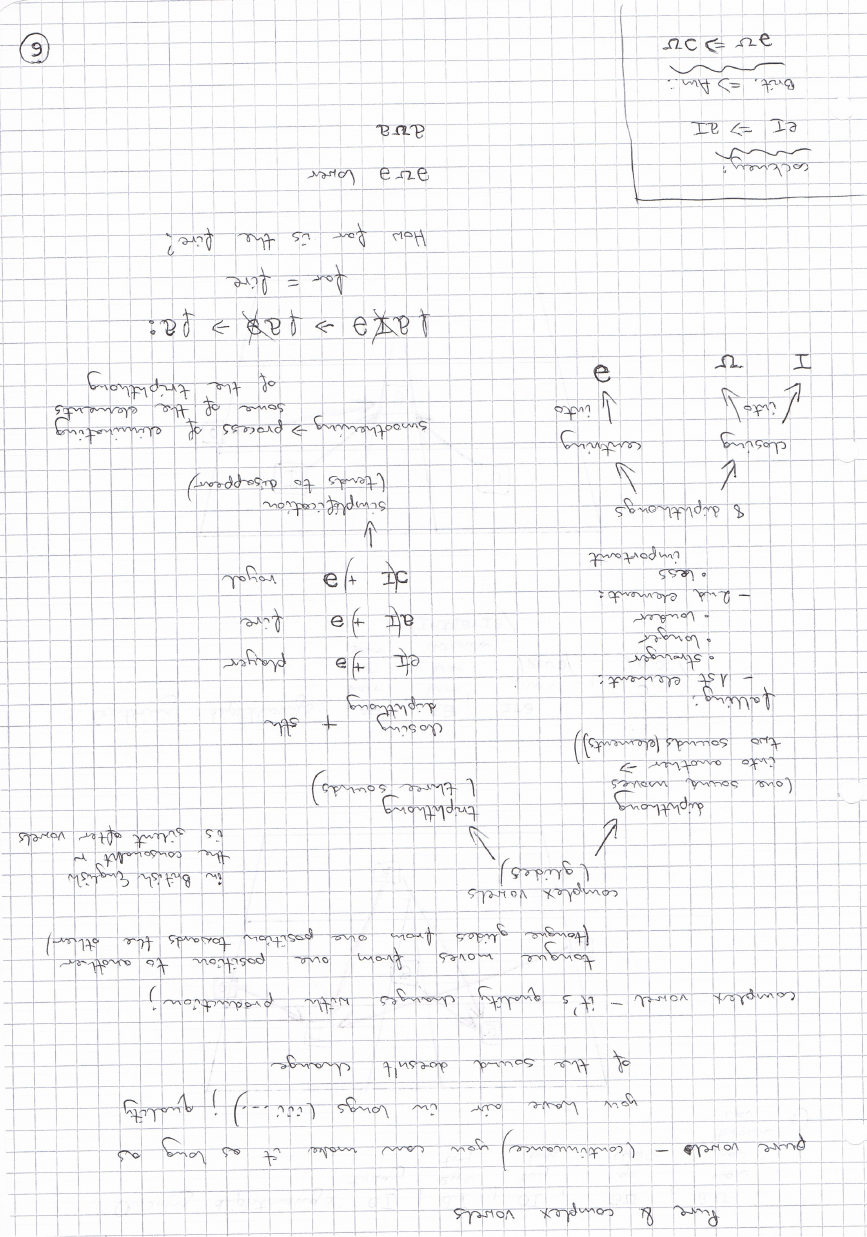 Pure & complex vowels
pure vowels - (continuance) you can make it as long as
you have air in longs (iii....) ; quality
of the sound doesn't change
complex vowel - it's quality changes with production ;
tongue moves from one position to another
(tongue glides from one position towards the other)
complex vowels
(glides)
in British English
the consonant r
is silent after vowels
diphthong
(one sound moves
into another ⇒
two sounds (elements))
falling:
- 1st element:
• stronger
• longer
• louder
- 2nd element:
• less
important
8 diphthongs
closing
centring
into
into
I ʊ
ə
triphthong
(three sounds)
closing + sth
diphthong
eI + ə player
aI + ə fire
ɔI + ə royal
simplification
(tends to disappear)
smoothening → process of eliminating
some of the elements
of the triphthong
faIə → faə → fa:
far = fire
How far is the fire?
əʊə lower
aʊə
cockney:
eI ⇒ aI
Brit. ⇒ Am.:
əʊ ⇒ ɔʊ
6